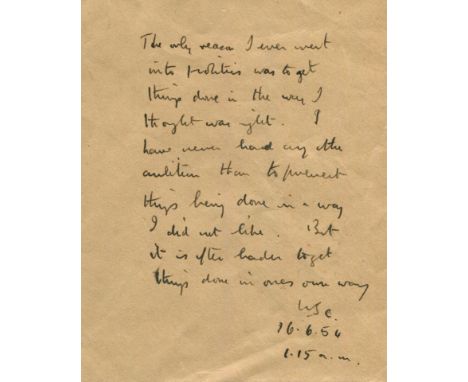 The only reason I ever went
into politics was to get
things done in the way I
thought was right. I
have never had any other
ambition than to prevent
things being done in a way
I did not like. But
it is often harder to get
things done in ones own way
WSC.
16.6.54
1.15 a.m.